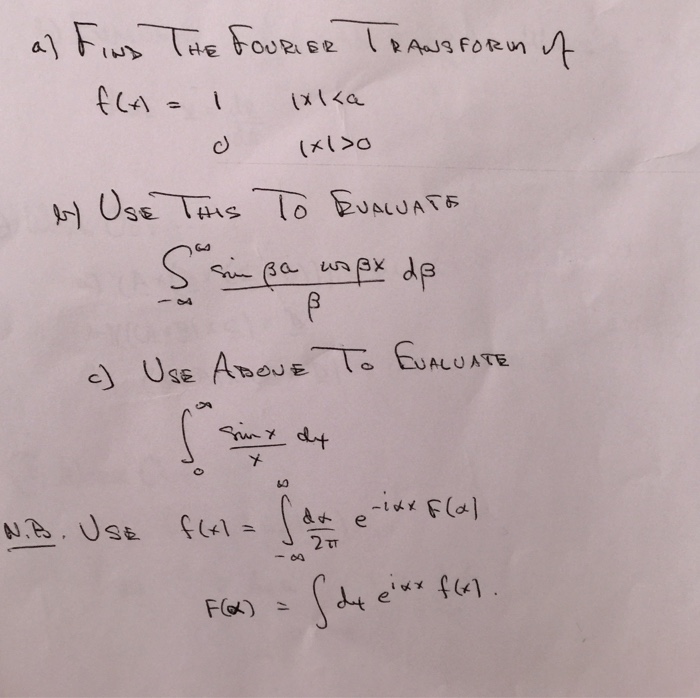 a) FIND THE FOURIER TRANSFORM of
f(x) = 1 |x|<a
0 |x|>0
b) USE THIS TO EVALUATE
∫_{-∞}^{∞} sin βa cos βx / β dβ
c) USE ABOVE TO EVALUATE
∫_0^∞ sin x / x dx
N.B. USE f(x) = ∫_{-∞}^{∞} dα/2π e^{-iαx} F(α)
F(α) = ∫ dx e^{iαx} f(x).